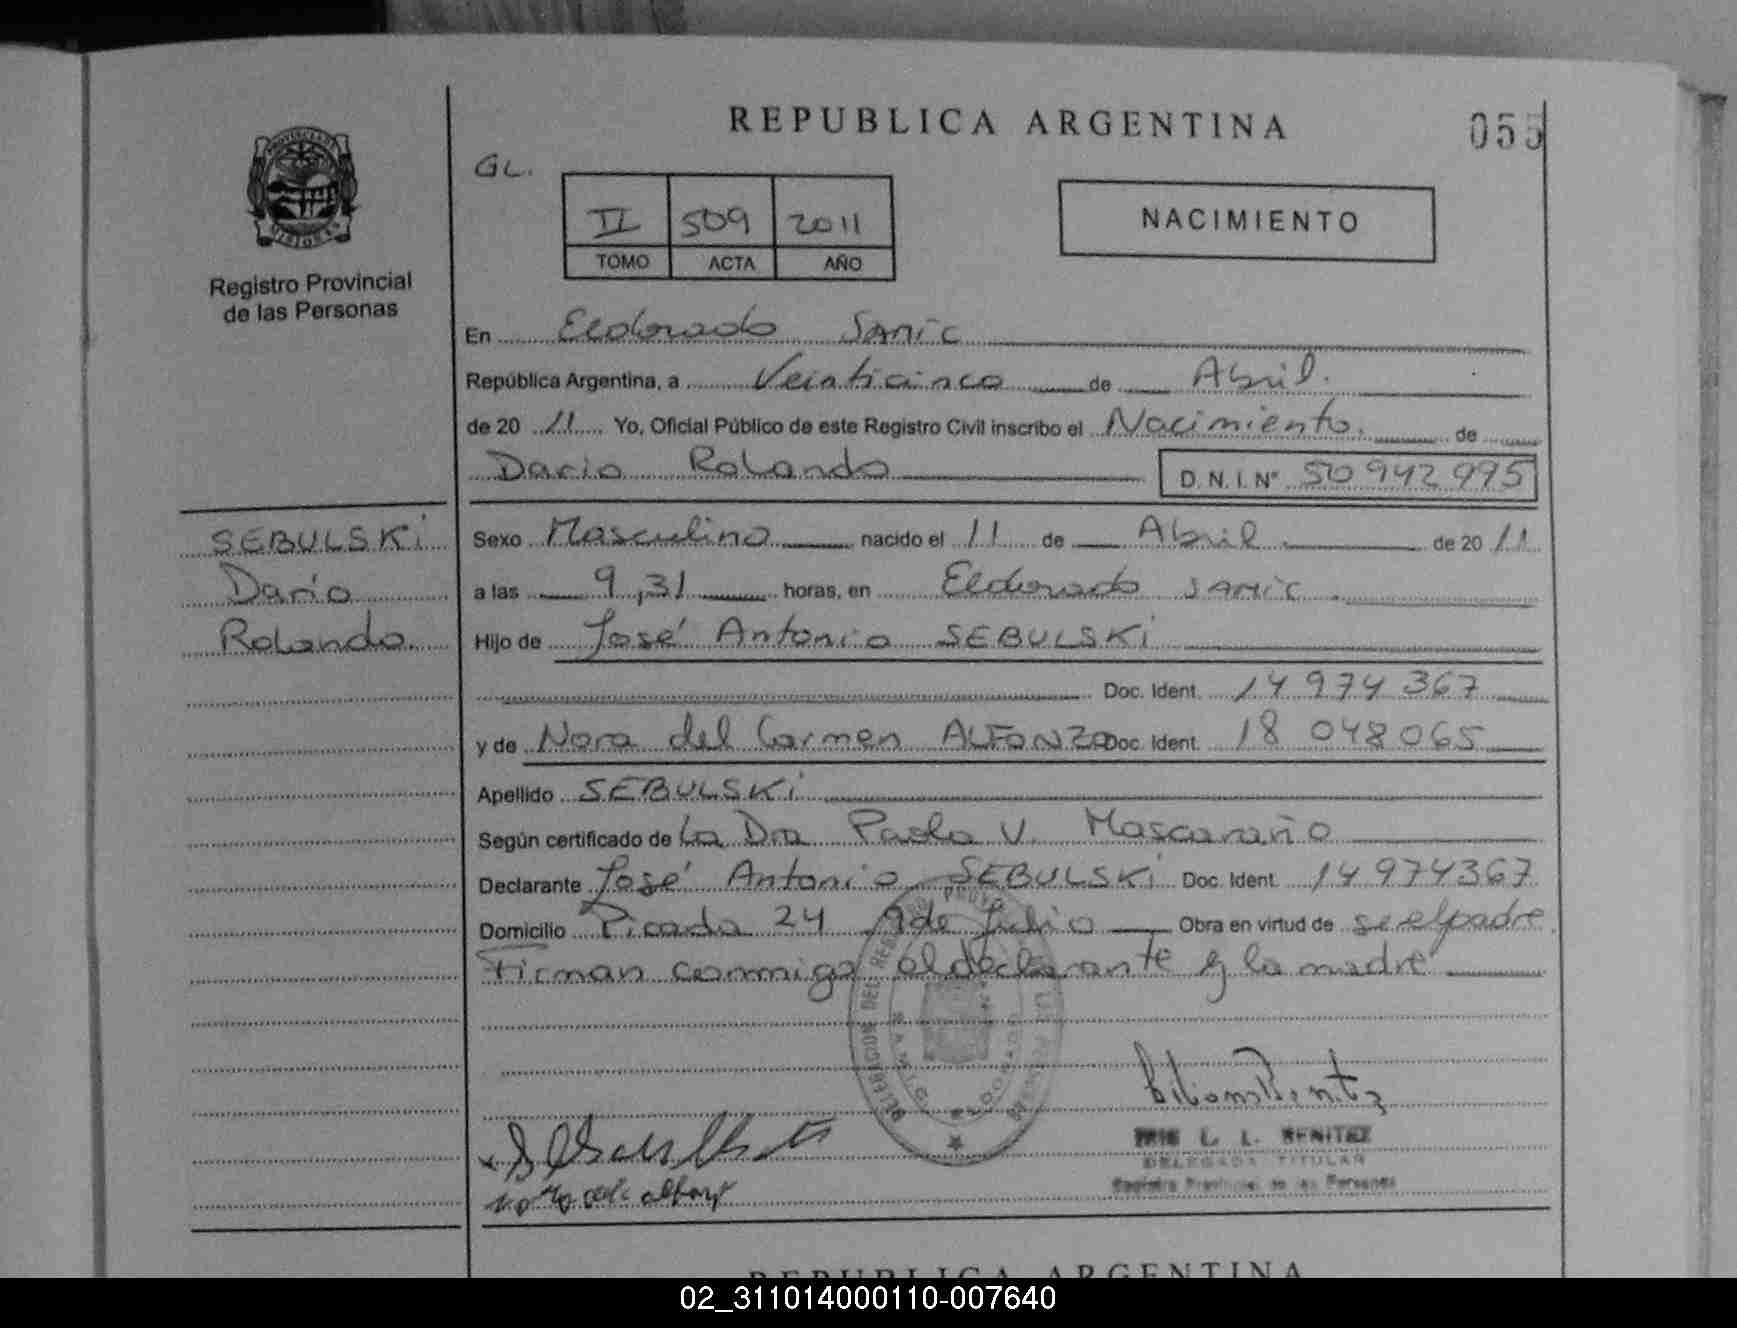 REPUBLICA ARGENTINA
055
GL.
PROVINCIA DE
MISIONES
Registro Provincial
de las Personas
II 509 2011
TOMO ACTA AÑO
NACIMIENTO
En Eldorado SAMIC
República Argentina, a Veinticinco de Abril.
de 20 11 Yo, Oficial Público de este Registro Civil inscribo el Nacimiento. de
Dario Rolando D.N.I.Nº 50 942 995
SEBULSKI
Dario
Rolando.
Sexo Masculino nacido el 11 de Abril de 20 11
a las 9,31 horas, en Eldorado SAMIC.
Hijo de José Antonio SEBULSKI
Doc. Ident. 14 974 367
y de Nora del Carmen ALFONZO Doc. Ident. 18 048 065
Apellido SEBULSKI
Según certificado de La Dra Paola V. Mascaraño
Declarante José Antonio SEBULSKI Doc. Ident. 14 974367
Domicilio Picada 24 9 de Julio Obra en virtud de se el padre.
Firman conmigo el declarante y la madre
DELEGACION DEL REGISTRO
ELDORADO
L. L. BENITEZ
DELEGADA TITULAR
Registro Provincial de las Personas
REPUBLICA ARGENTINA
02_311014000110-007640